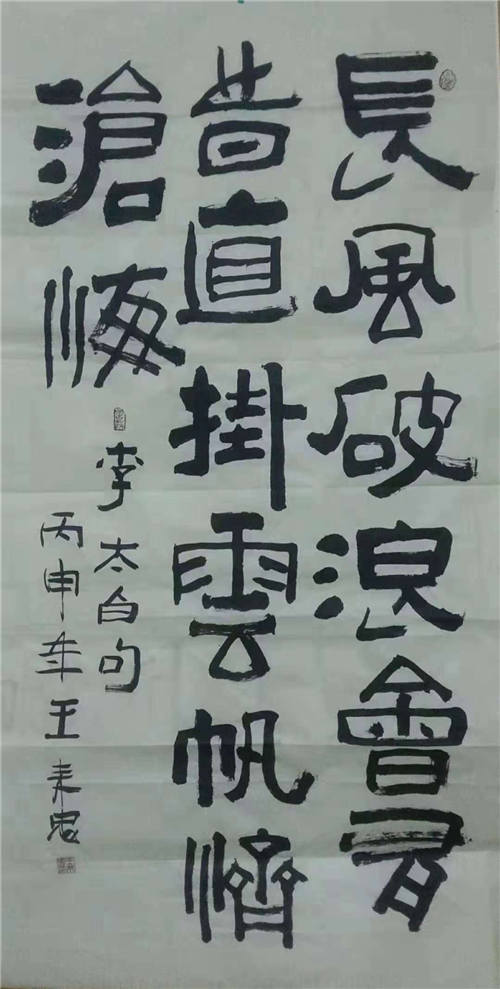 長風破浪會有
旹直掛雲帆濟
滄海
李太白句
丙申年王